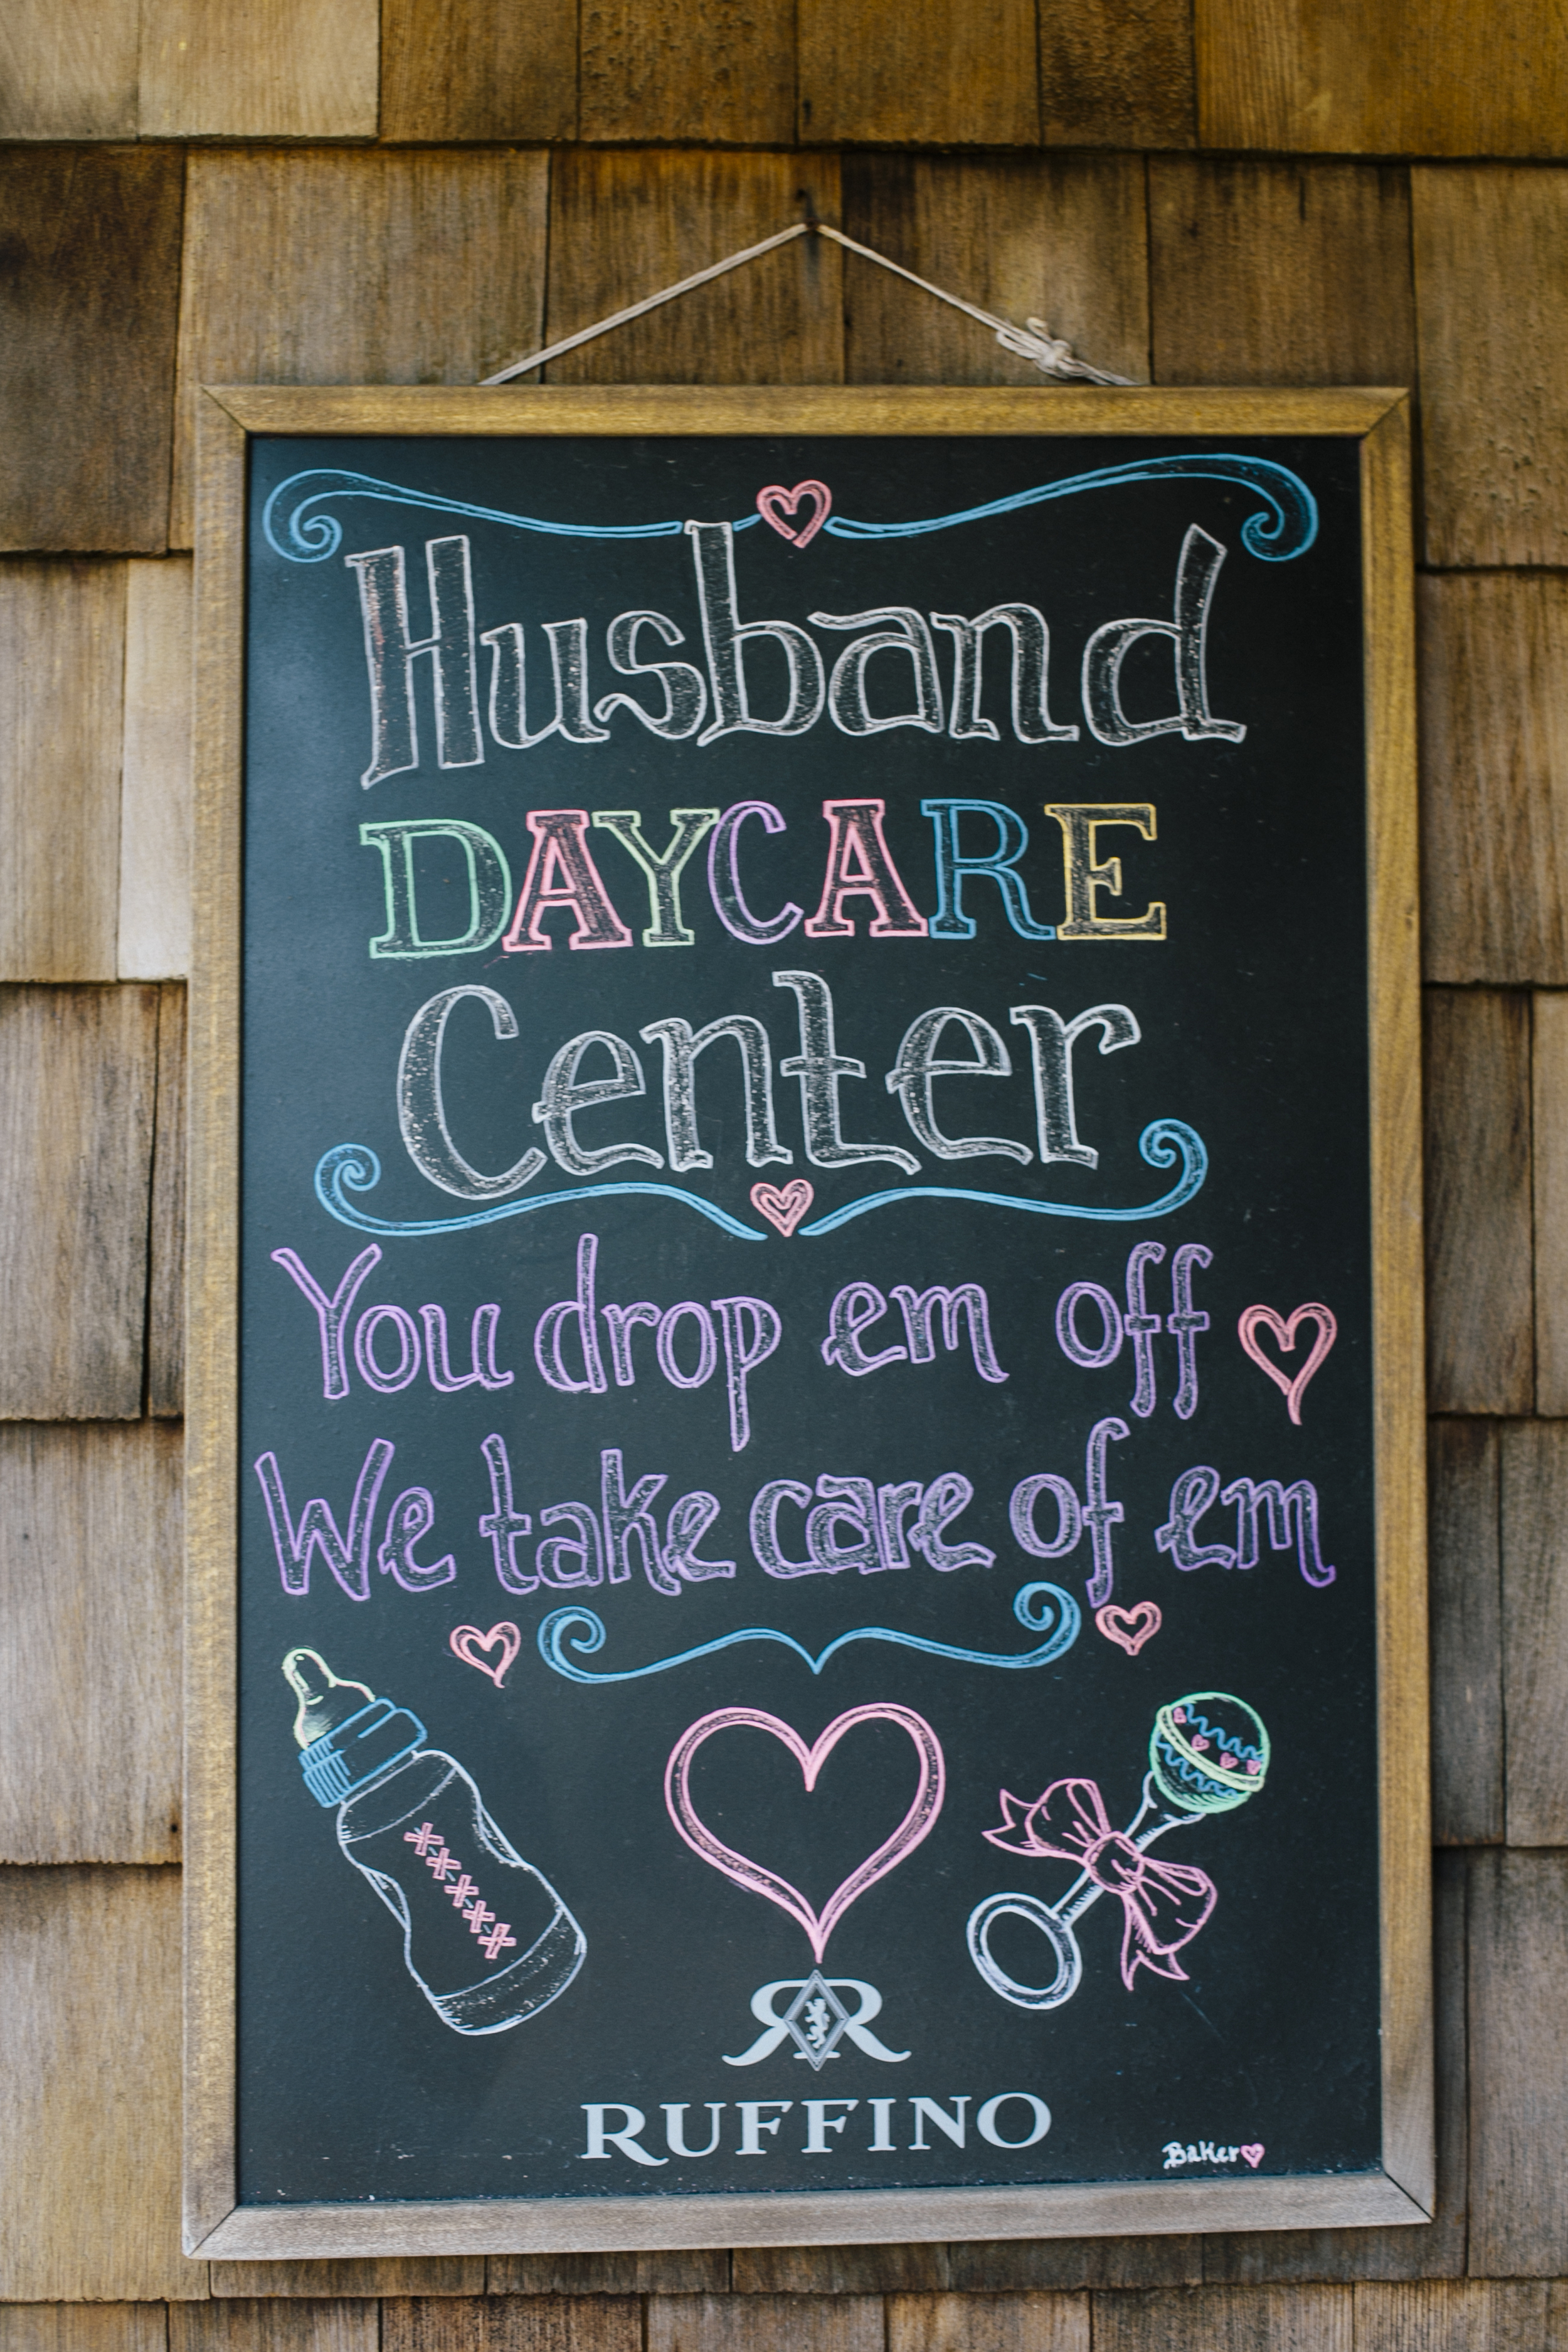 Husband
DAYCARE
Center
You drop em off
We take care of em
RUFFINO
Baker